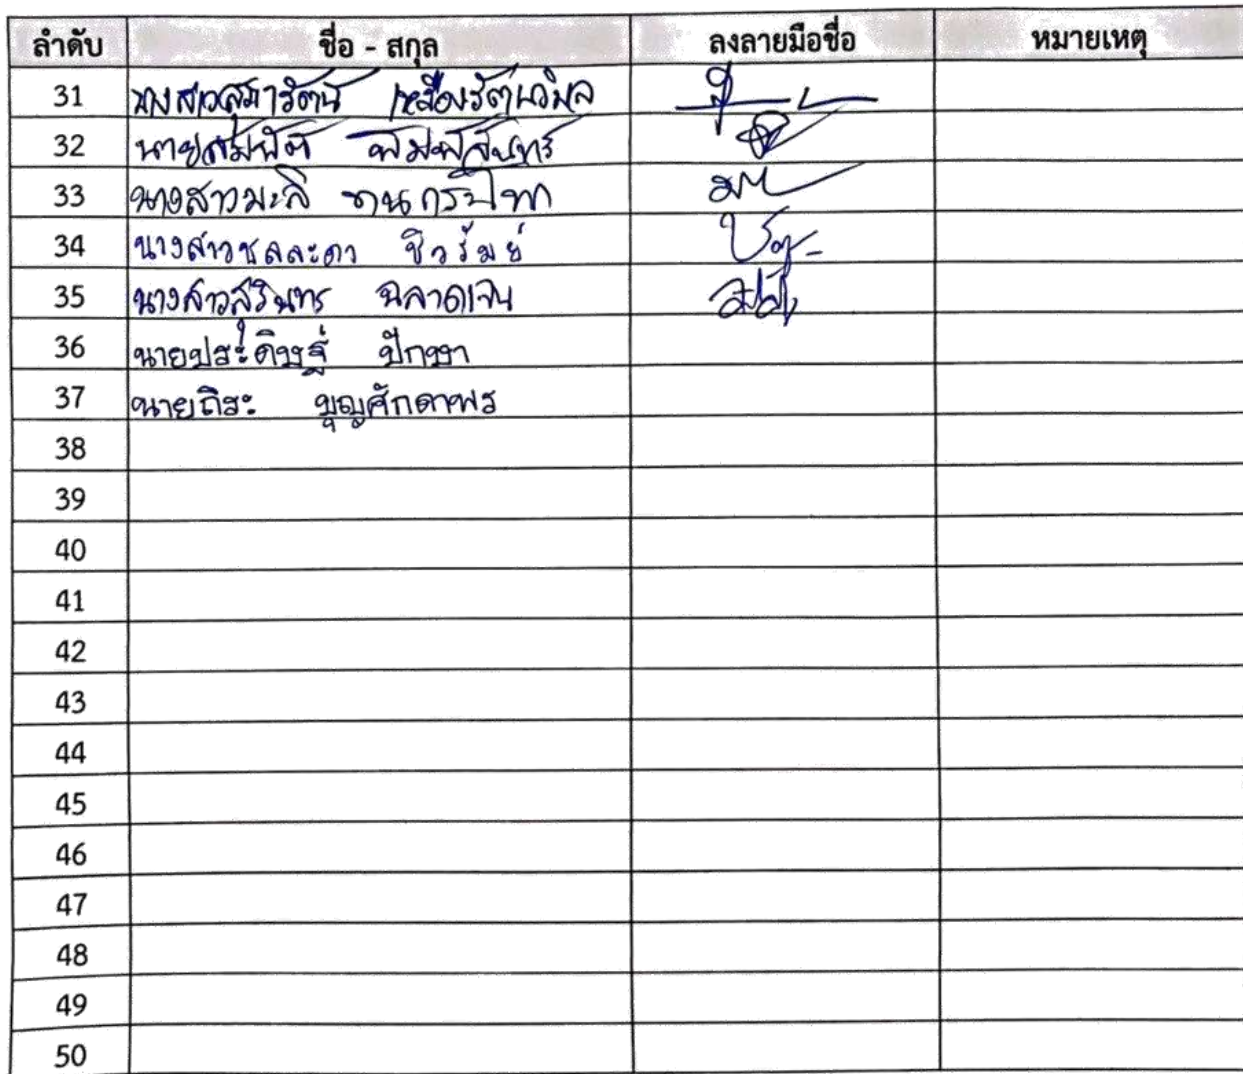 ลำดับ ชื่อ - สกุล ลงลายมือชื่อ หมายเหตุ
31 นางสาวสุภารัตน์ เหลืองรัตนวิมล
32 นายสมพิศ พิมพ์สินทร
33 นางสาวมะลิ
34 นางสาวชลละดา ชิวรัมย์
35 นางสาวสุรินทร ฉลาดเจน
36 นายประดิษฐ์ ปักษา
37 นายถิระ บุญศักดาพร
38
39
40
41
42
43
44
45
46
47
48
49
50